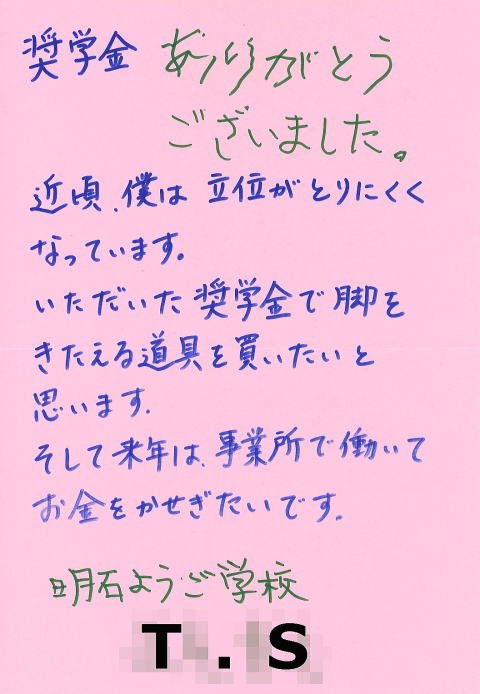 奨学金 ありがとう
ございました。
近頃、僕は 立位がとりにくく
なっています。
いただいた奨学金で脚を
きたえる道具を買いたいと
思います。
そして来年は、事業所で働いて
お金をかせぎたいです。
明石ようご学校
T.S